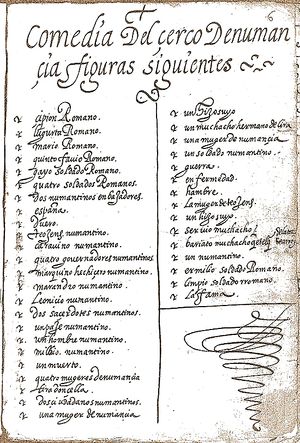 6
Comedia Del cerco Denuman
çia figuras siguientes
cipion Romano.
Jugurta Romano.
mario Romano.
quinto fabio Romano.
gayo soldado Romano.
quatro soldados Romanos.
dos numantinos enbaxadores.
españa.
duero.
teogenes numantino.
carauino numantino.
quatro gouernadores numantinos
marquino hechizero numantino.
marandro numantino.
Leonicio numantino.
dos sacerdotes numantinos.
un paje numantino.
un hombre numantino.
milbio. numantino.
un muerto.
quatro mugeres denumançia
lira donzella.
dos ciudadanos numantinos.
una muger de numançia
un hijo suyo
un muchacho hermano de lira
una muger de numançia
un soldado numantino.
guerra.
enfermedad.
hambre.
La muger de teogenes.
un hijo suyo.
seruio muchacho
bariato muchacho
un numantino.
ermilio soldado Romano.
limpio soldado rromano.
La fama